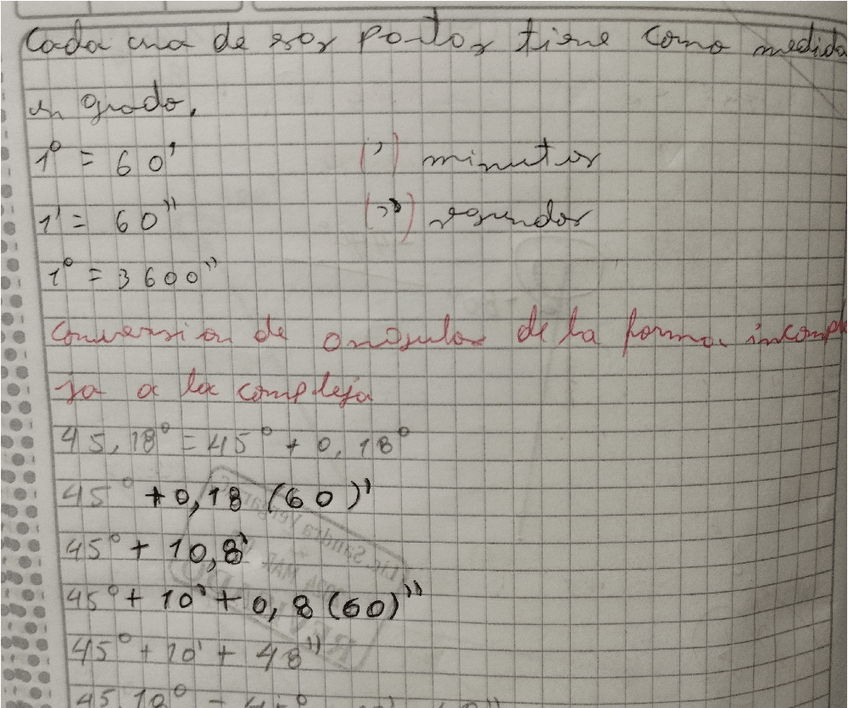 Cada una de esas partes tiene como medida
un grado.
1° = 60' (') minutos
1' = 60'' ('') segundos
1° = 3600''
Conversion de angulos de la forma incomple
ja a la compleja
45,18° = 45° + 0,18°
45° + 0,18 (60)'
45° + 10,8'
45° + 10' + 0,8 (60)''
45° + 10' + 48''
45,18° =